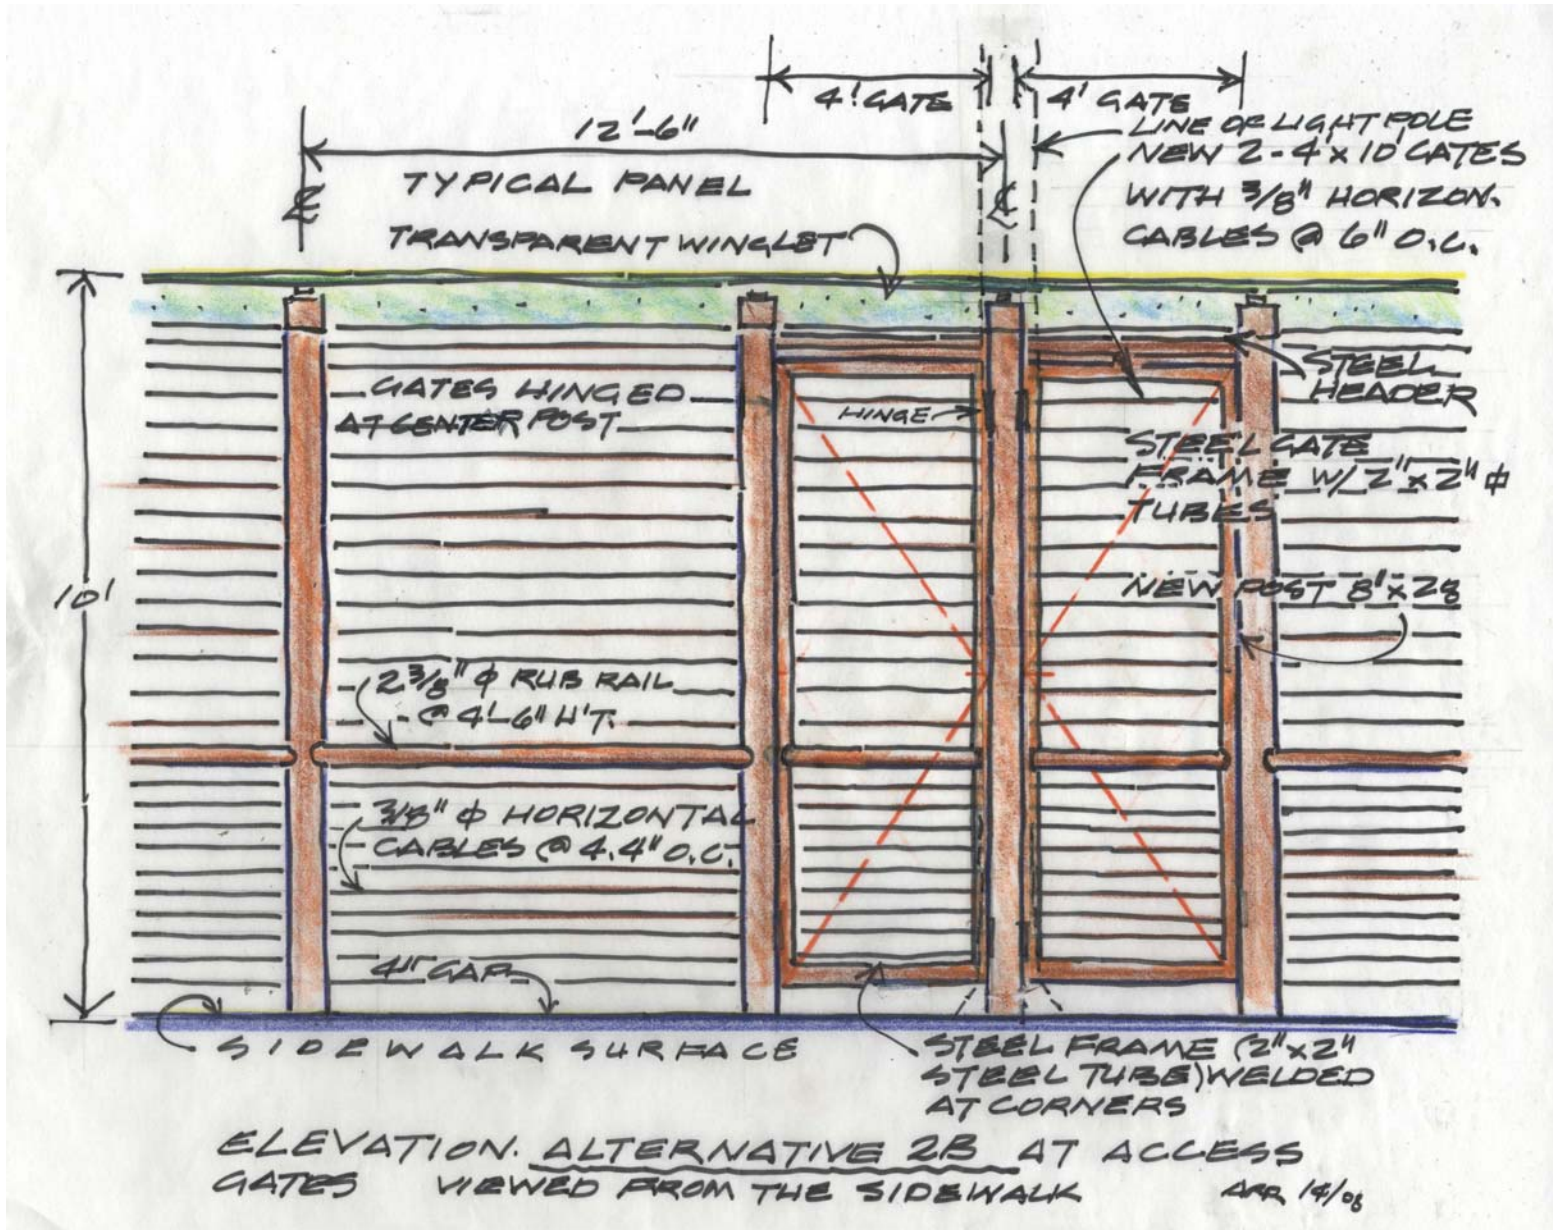 4' GATE
4' GATE
12'-6"
TYPICAL PANEL
LINE OF LIGHT POLE
NEW 2-4'x10' GATES
WITH 3/8" HORIZON.
CABLES @ 6" O.C.
℄
℄
TRANSPARENT WINGLET
10'
GATES HINGED
AT CENTER POST
HINGE
STEEL
HEADER
STEEL GATE
FRAME W/2"x2" ⌀
TUBES
NEW POST 8"x28
2 3/8" ⌀ RUB RAIL
@ 4'-6" H'T.
3/8" ⌀ HORIZONTAL
CABLES @ 4.4" O.C.
4" GAP
SIDEWALK SURFACE
STEEL FRAME (2"x2"
STEEL TUBE) WELDED
AT CORNERS
ELEVATION. ALTERNATIVE 2B AT ACCESS
GATES VIEWED FROM THE SIDEWALK
APR 14/06